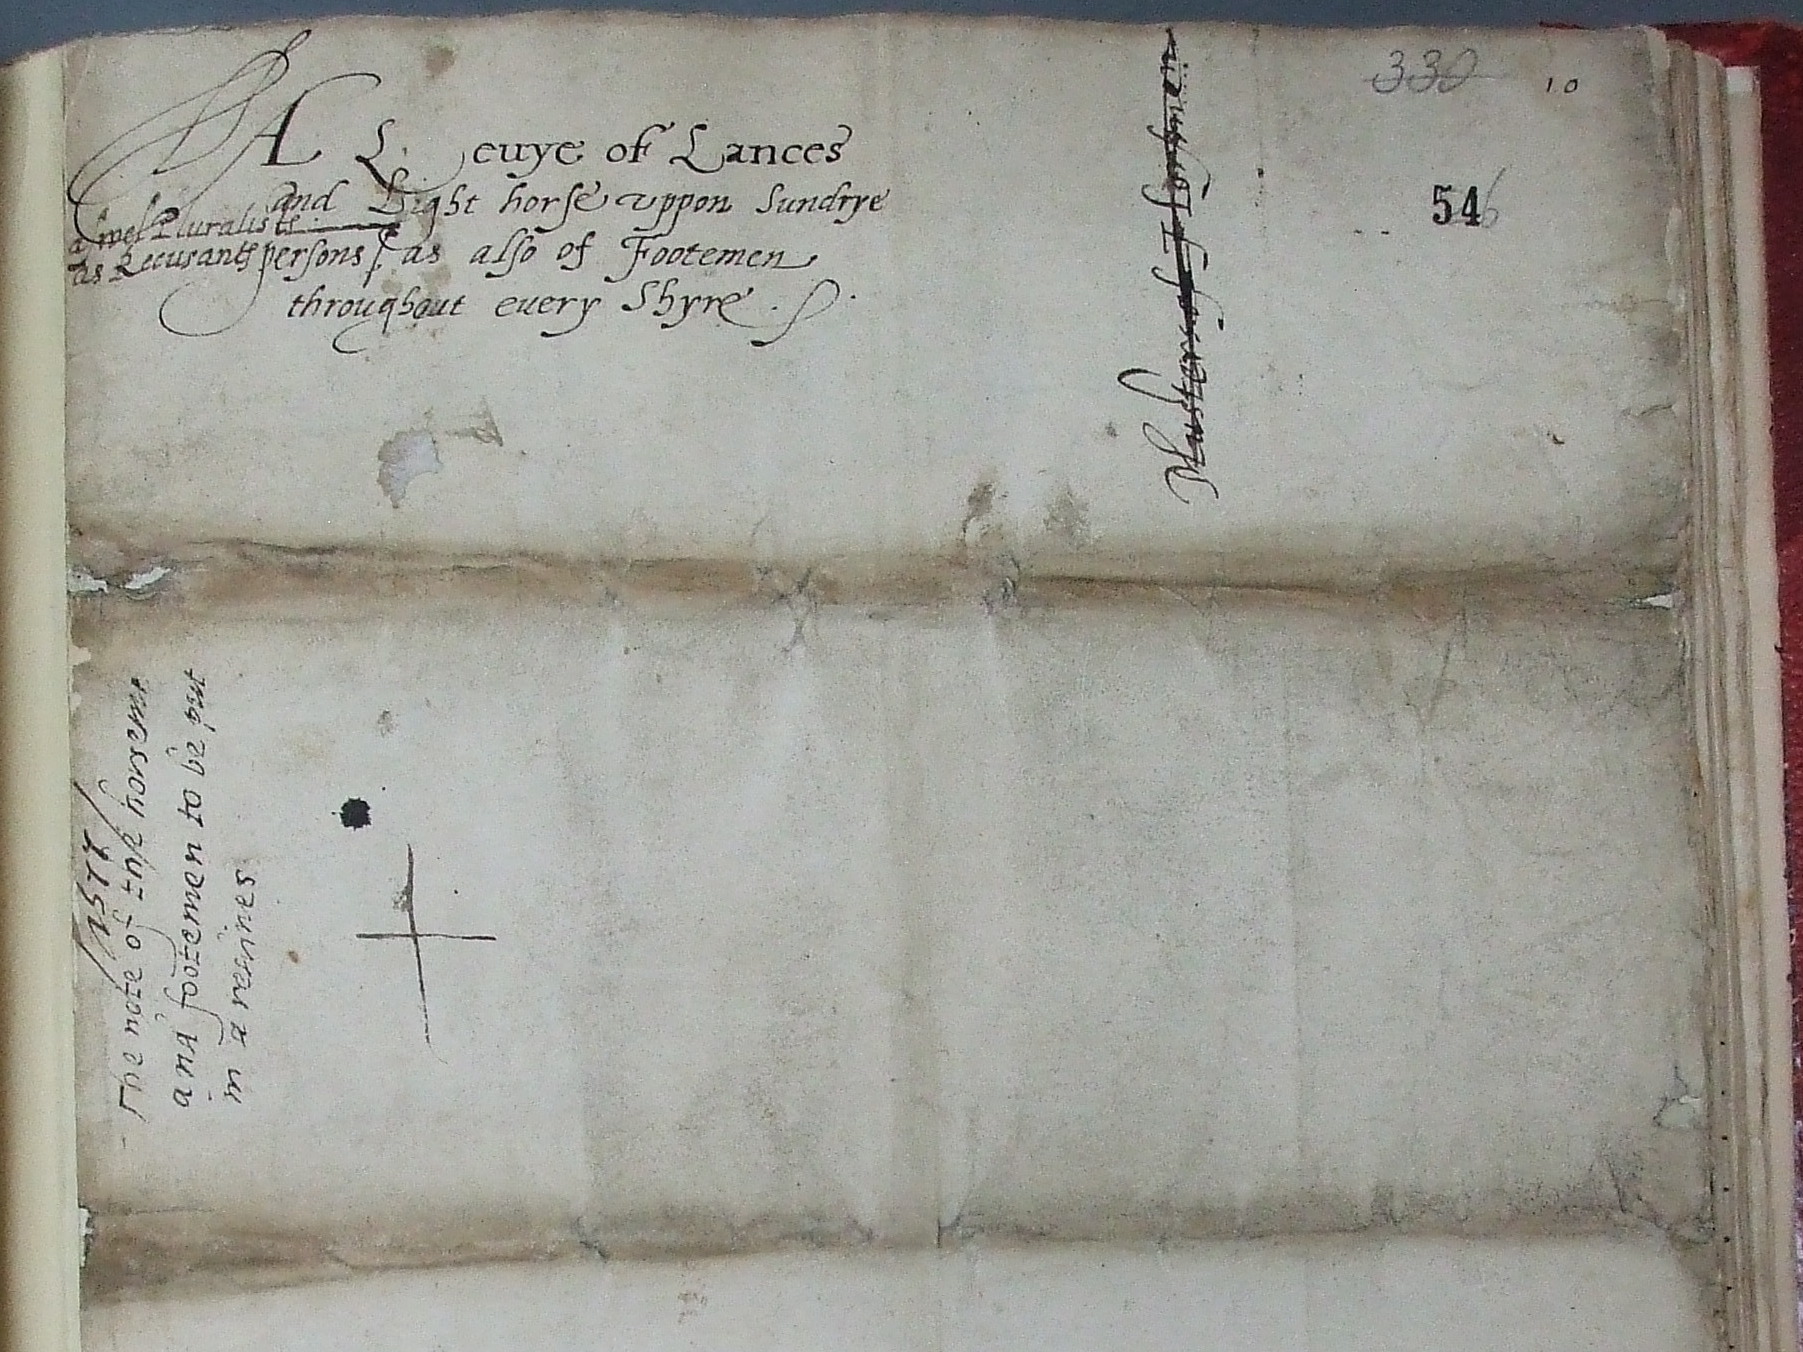 330
10
A Leuye of Lances
and Light horse vppon Sundrye
aswel Pluralistes
as Recusants persons / as also of Footemen
throughout every Shyre
546
Maisters of Horsmen
The note of the horsemē
and footemen to be put
in a reaines